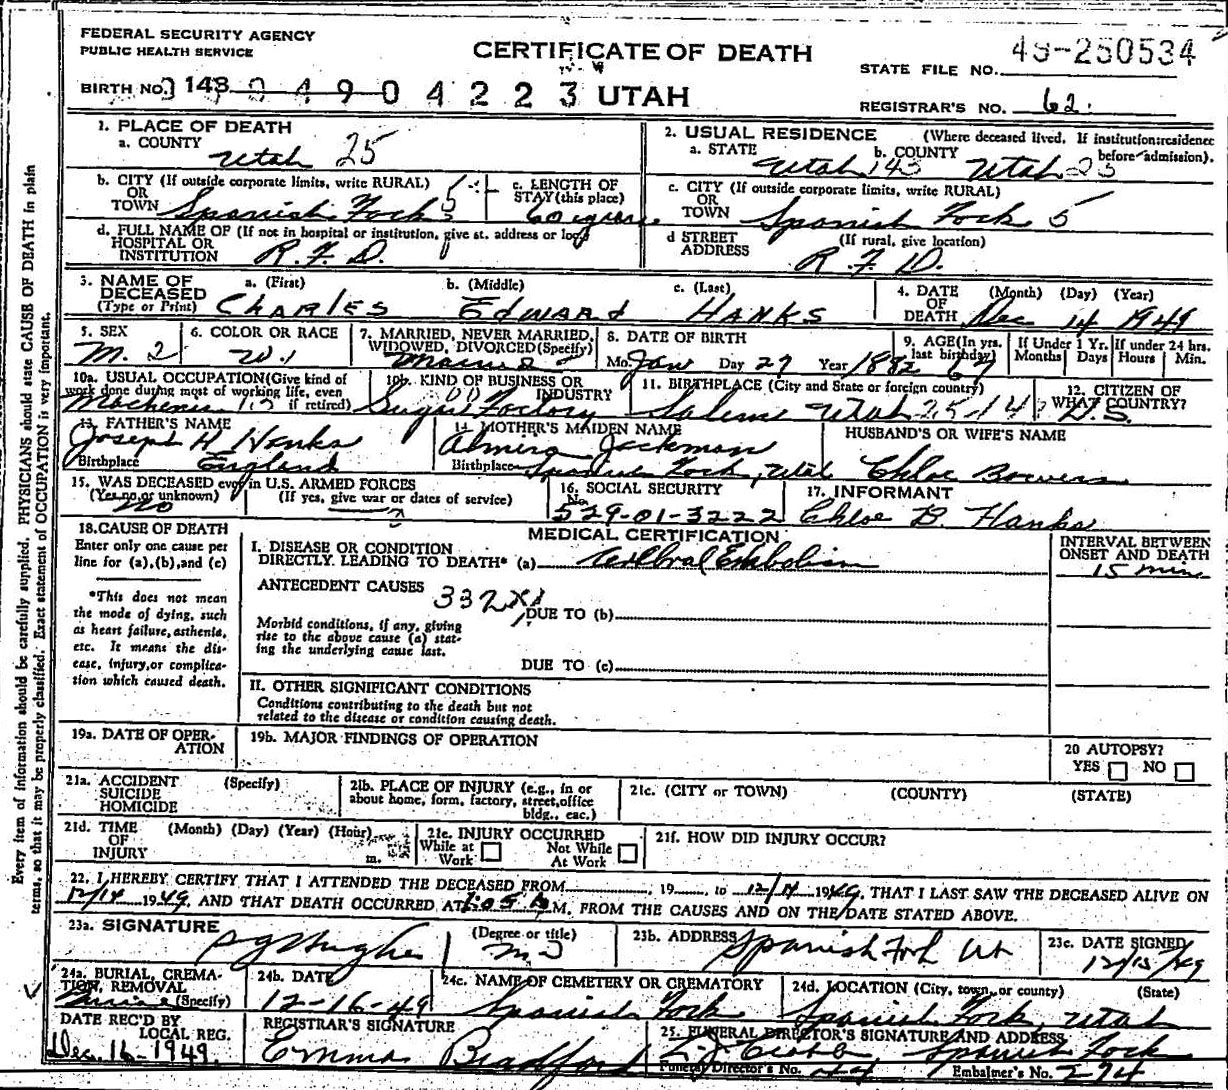 FEDERAL SECURITY AGENCY
PUBLIC HEALTH SERVICE
CERTIFICATE OF DEATH
STATE FILE NO. 49-250534
BIRTH NO. 143 0 4 9 0 4 2 2 3 UTAH
REGISTRAR'S NO. 62.
1. PLACE OF DEATH
a. COUNTY Utah 25
2. USUAL RESIDENCE (Where deceased lived. If institution:residence before admission).
a. STATE Utah 143 b. COUNTY Utah 25
b. CITY (If outside corporate limits, write RURAL)
OR TOWN Spanish Fork 5
c. LENGTH OF STAY (this place) 60 years
c. CITY (If outside corporate limits, write RURAL)
OR TOWN Spanish Fork 5
d. FULL NAME OF (If not in hospital or institution, give st. address or loc
HOSPITAL OR INSTITUTION R. F. D.
d STREET ADDRESS (If rural, give location)
R. F. D.
3. NAME OF DECEASED (Type or Print)
a. (First) CHARLES b. (Middle) EDWARD c. (Last) HANKS
4. DATE OF DEATH (Month) (Day) (Year)
Dec 14 1949
5. SEX M. 2
6. COLOR OR RACE W. 1
7. MARRIED, NEVER MARRIED, WIDOWED, DIVORCED (Specify)
8. DATE OF BIRTH
Mo. Jan Day 29 Year 1882
9. AGE (In yrs. last birthday) 67
If Under 1 Yr. Months Days
If under 24 hrs. Hours Min.
10a. USUAL OCCUPATION (Give kind of work done during most of working life, even if retired)
10b. KIND OF BUSINESS OR INDUSTRY
Sugar Factory
11. BIRTHPLACE (City and State or foreign country)
Salem Utah 25-14
12. CITIZEN OF WHAT COUNTRY?
U.S.
13. FATHER'S NAME
Joseph H. Hanks
Birthplace England
14. MOTHER'S MAIDEN NAME
Almira Jackman
Birthplace Spanish Fork, Utah
HUSBAND'S OR WIFE'S NAME
Chloe Bowers
15. WAS DECEASED ever in U.S. ARMED FORCES
(Yes no or unknown) (If yes, give war or dates of service)
No
16. SOCIAL SECURITY No.
529-01-3222
17. INFORMANT
Chloe B. Hanks
18. CAUSE OF DEATH
Enter only one cause per line for (a), (b), and (c)
*This does not mean the mode of dying, such as heart failure, asthenia, etc. It means the disease, injury, or complication which caused death.
MEDICAL CERTIFICATION
I. DISEASE OR CONDITION DIRECTLY LEADING TO DEATH* (a) Cerebral Embolism
INTERVAL BETWEEN ONSET AND DEATH
15 min
ANTECEDENT CAUSES 332X
DUE TO (b)
Morbid conditions, if any, giving rise to the above cause (a) stating the underlying cause last.
DUE TO (c)
II. OTHER SIGNIFICANT CONDITIONS
Conditions contributing to the death but not related to the disease or condition causing death.
19a. DATE OF OPERATION
19b. MAJOR FINDINGS OF OPERATION
20 AUTOPSY?
YES NO
21a. ACCIDENT SUICIDE HOMICIDE (Specify)
21b. PLACE OF INJURY (e.g., in or about home, form, factory, street, office bldg., eac.)
21c. (CITY or TOWN) (COUNTY) (STATE)
21d. TIME OF INJURY (Month) (Day) (Year) (Hour) m.
21e. INJURY OCCURRED
While at Work Not While At Work
21f. HOW DID INJURY OCCUR?
22. I HEREBY CERTIFY THAT I ATTENDED THE DECEASED FROM , 19 , to 12/14 1949, THAT I LAST SAW THE DECEASED ALIVE ON
12/14 1949, AND THAT DEATH OCCURRED AT 1:05 P.M. FROM THE CAUSES AND ON THE DATE STATED ABOVE.
23a. SIGNATURE (Degree or title)
Hughes MD
23b. ADDRESS
Spanish Fork Ut
23c. DATE SIGNED
12/15/49
24a. BURIAL, CREMATION, REMOVAL (Specify)
24b. DATE
12-16-49
24c. NAME OF CEMETERY OR CREMATORY
Spanish Fork
24d. LOCATION (City, town, or county) (State)
Spanish Fork, Utah
DATE REC'D BY LOCAL REG.
Dec. 16-1949
REGISTRAR'S SIGNATURE
Emma Bradford
25. FUNERAL DIRECTOR'S SIGNATURE AND ADDRESS
Spanish Fork
Funeral Director's No. Embalmer's No. 294
Every item of information should be carefully supplied. PHYSICIANS should state CAUSE OF DEATH in plain
terms, so that it may be properly classified. Exact statement of OCCUPATION is very important.